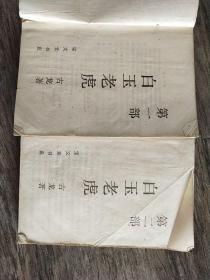 第一部
白玉老虎
古龙著
第二部
白玉老虎
古龙著